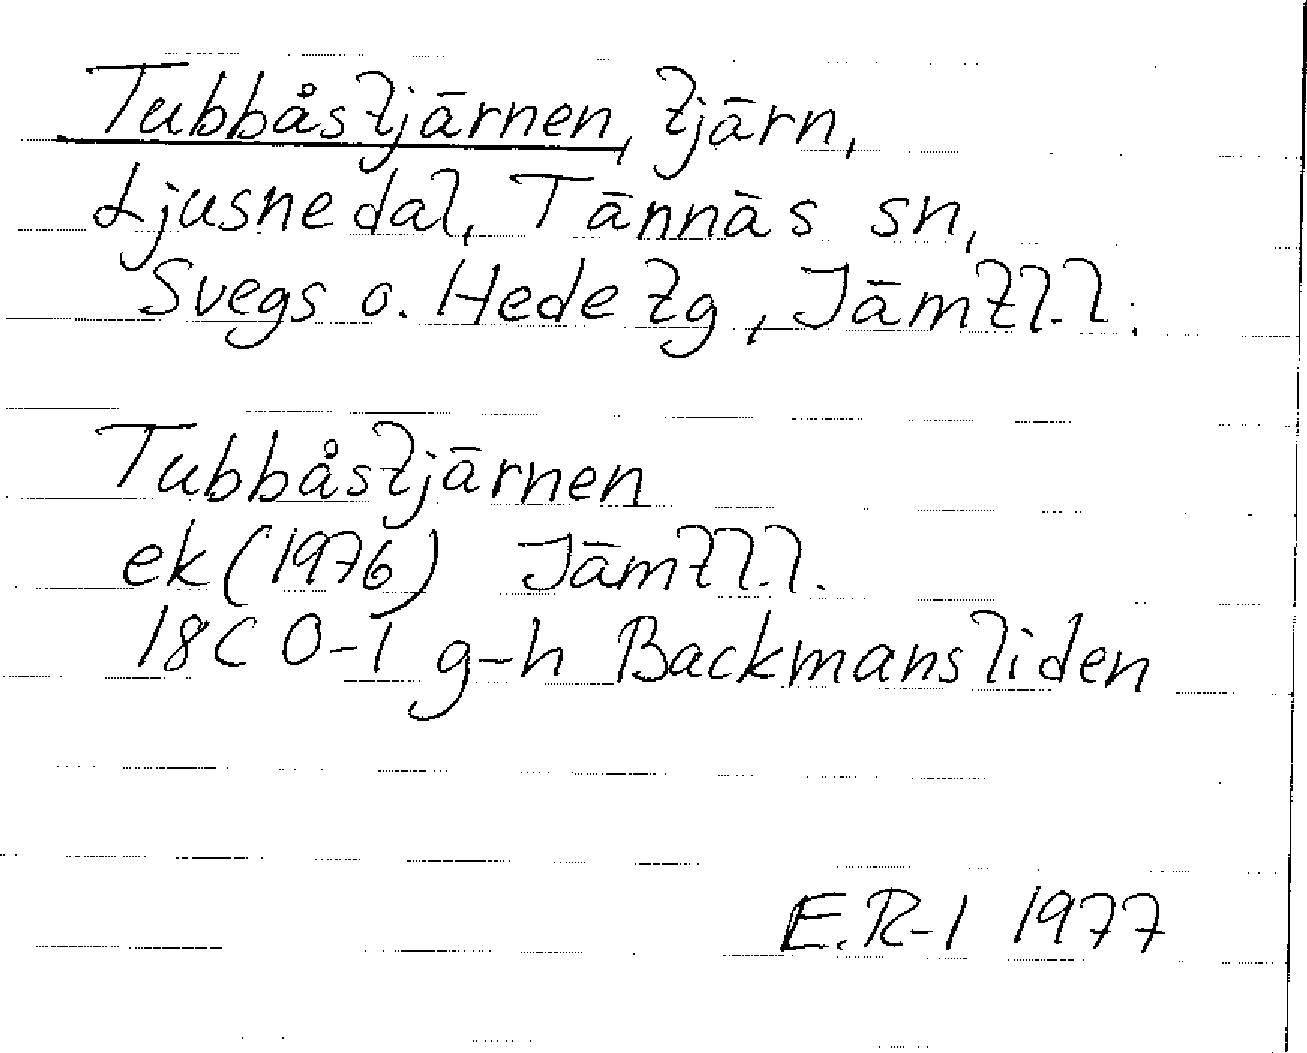 Tubbåstjärnen, tjärn,
Ljusnedal, Tännäs sn,
Svegs o. Hede tg, Jämtl.l.
Tubbåstjärnen
ek (1976) Jämtl.l.
18C 0-1 g-h Backmansliden
E.R-l 1977